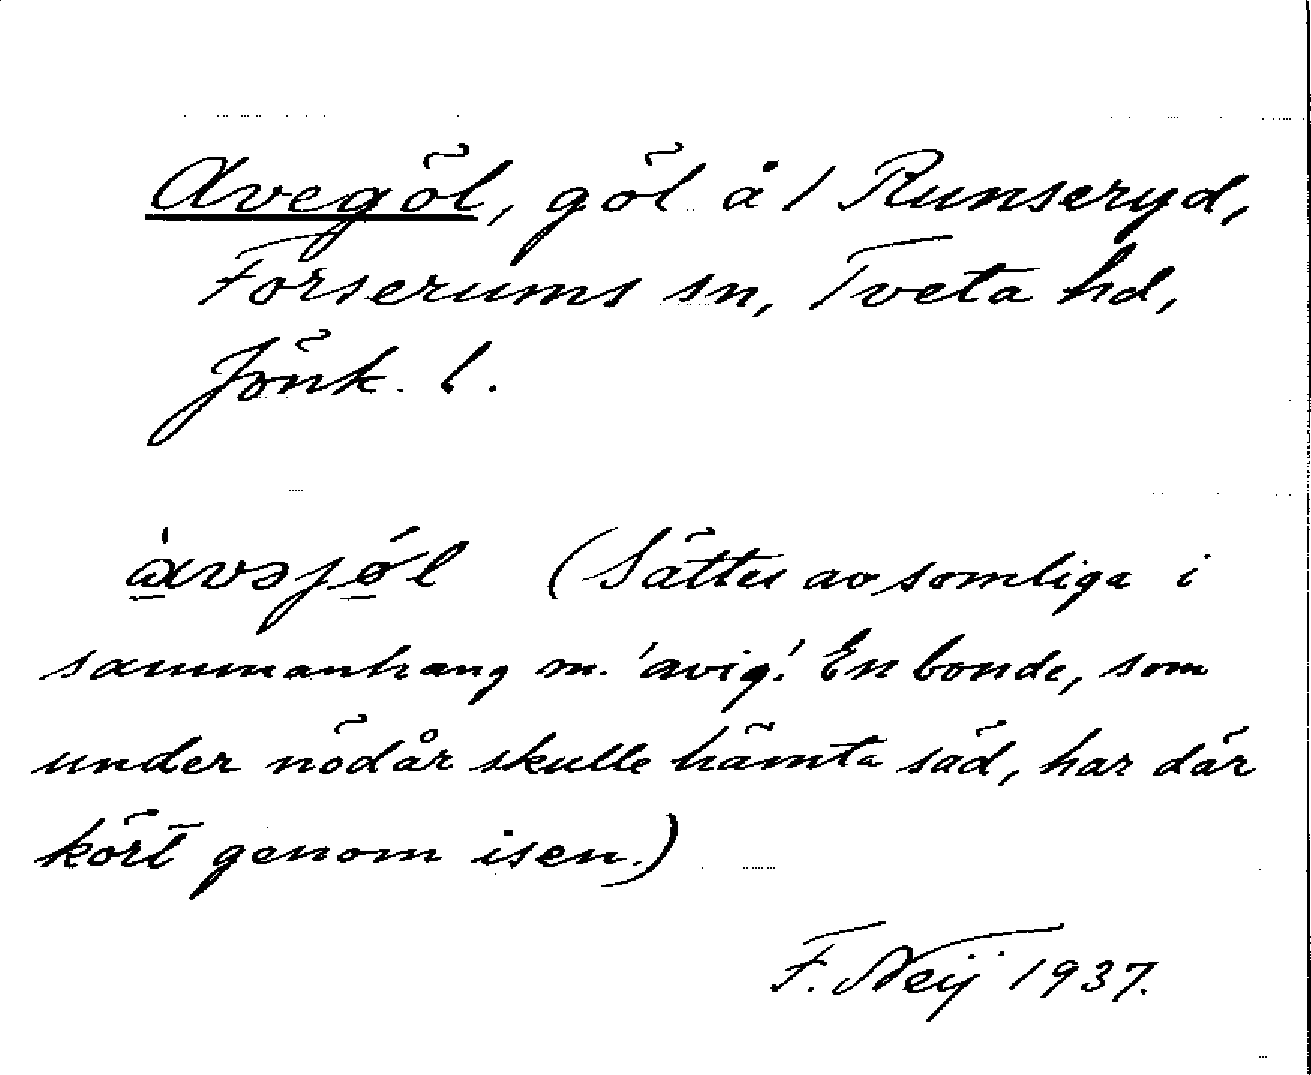 Avegöl, göl å 1 Runseryd,
Forserums sn, Tveta hd,
Jönk. l.
àvəjǿl (Sättes av somliga i
sammanhang m. 'avig'. En bonde, som
under nödår skulle hämta säd, har där
kört genom isen.)
F. Neij 1937.